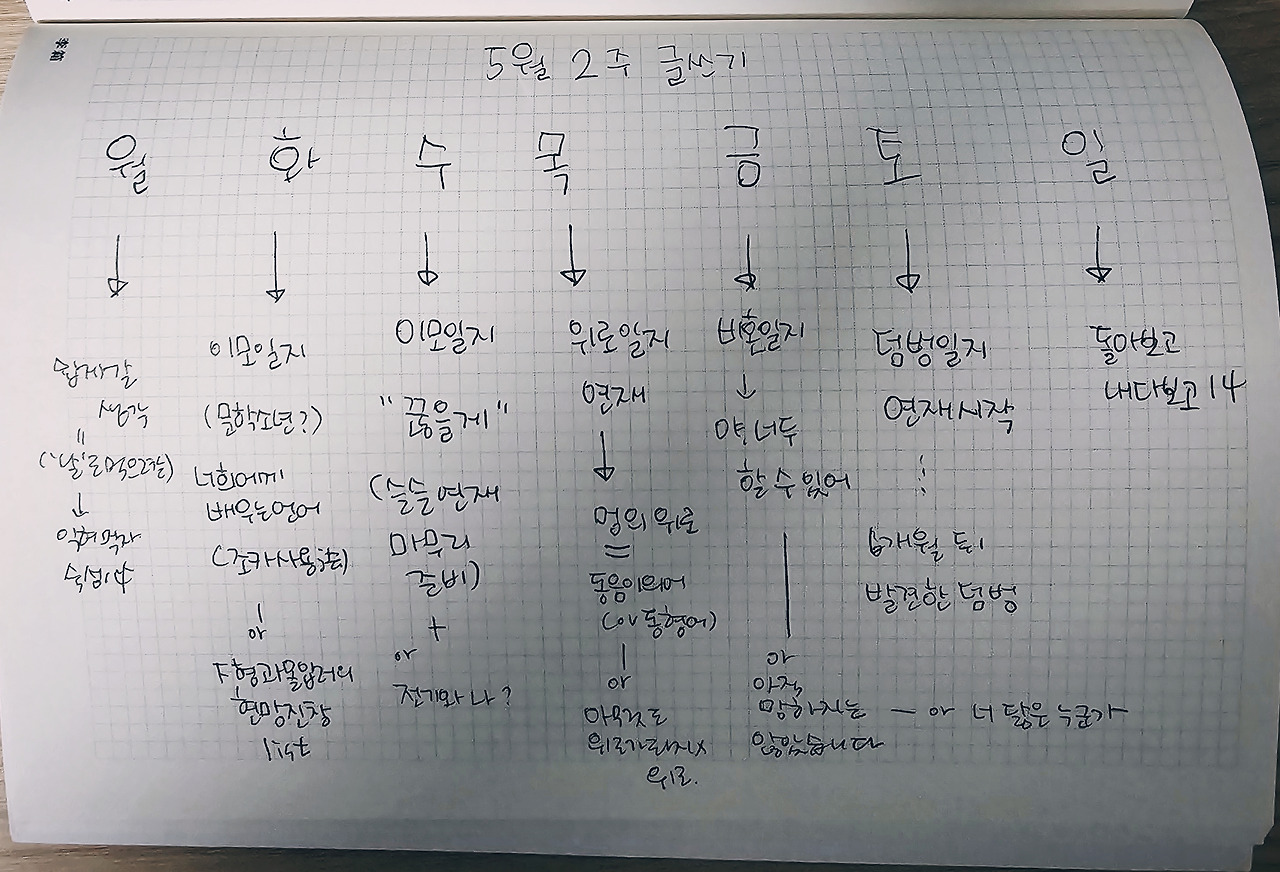 5월 2주 글쓰기
월 화 수 목 금 토 일
생각
("날"로 먹으려는)
↓
익혀먹자
이모일지
(문학소년?)
너희에게
배우는언어
(조카사용
or
현망진창
list
이모일지
"꿈을게"
(슬슬연재
마무리
준비)
+
or
전기와 나?
위로일지
연재
멍의 위로
=
동음이의어
(or 동형어)
or
아무것도
위로가되지x
위로.
비혼일지
↓
야, 너두
할 수 있어
or
아직
망하지는 — or 너 닮은 누군가
않았습니다
덤벙일지
연재시작
6개월 동
발견한 덤벙
돌아보고
내다보고 14